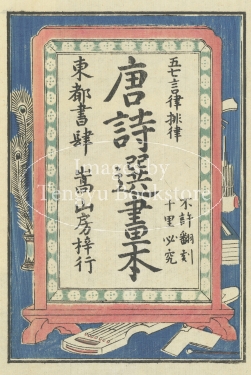 五七言律排律
不許翻刻
千里必究
唐詩選畫本
東都書肆 嵩山房梓行
Images by
Tengyu Bookstore